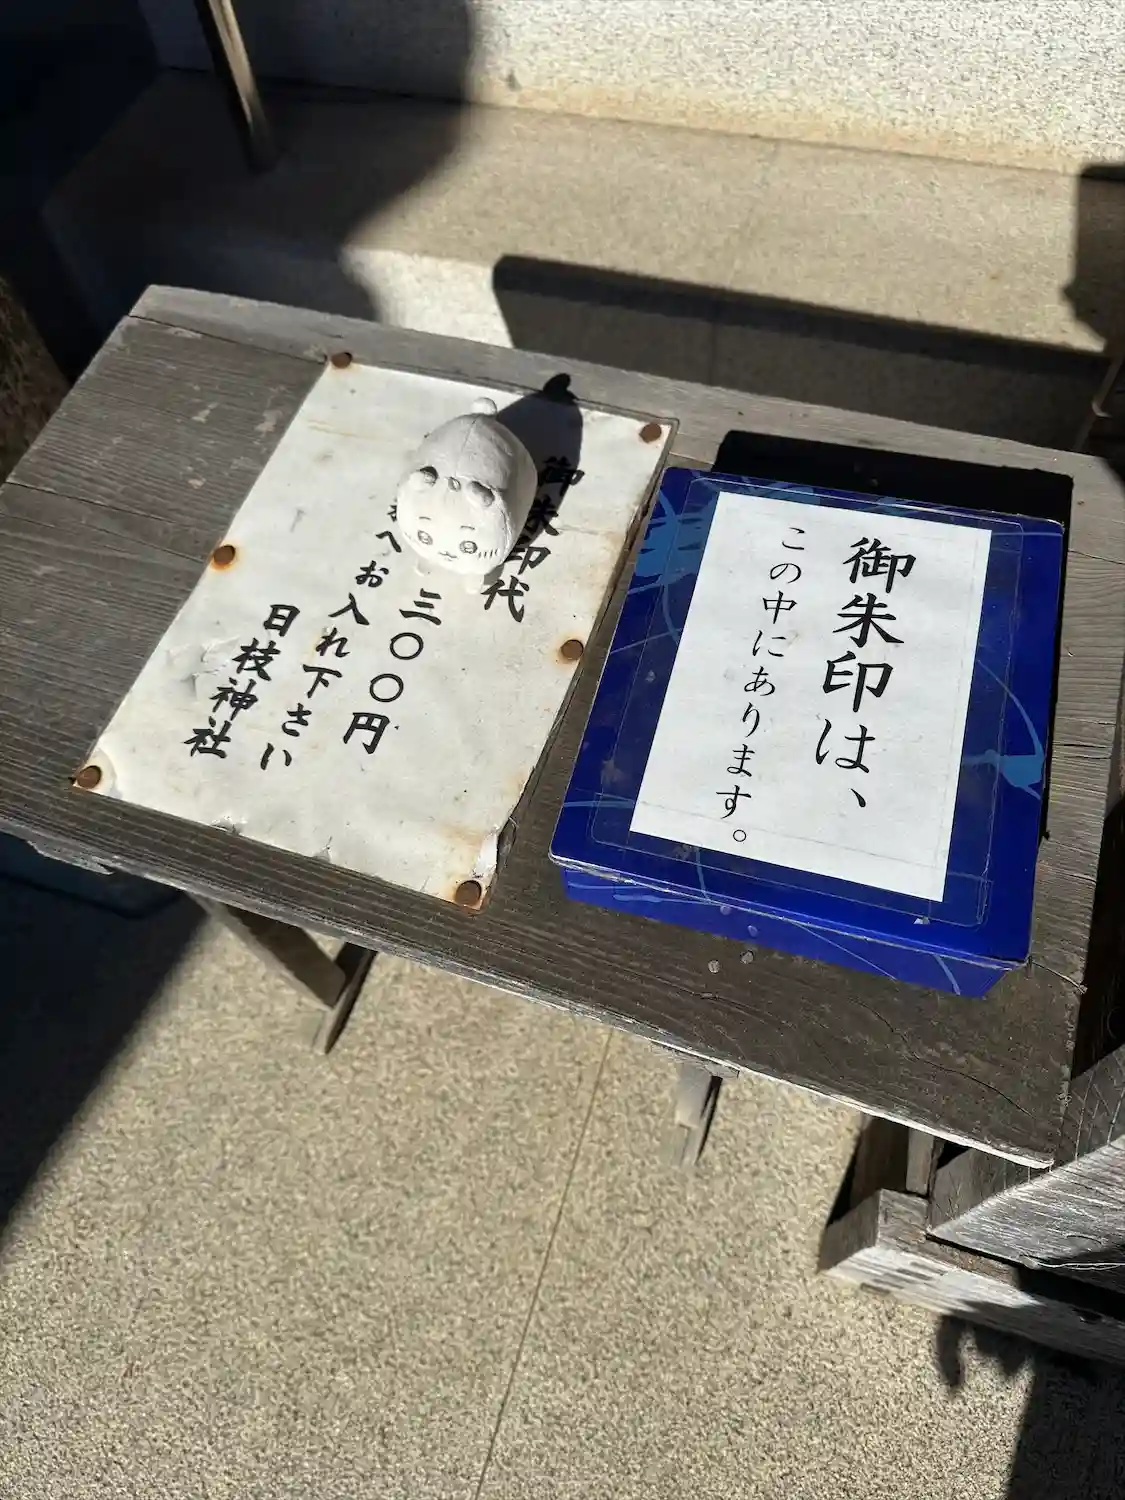 御朱印代
三〇〇円
へお入れ下さい
日枝神社
御朱印は、
この中にあります。